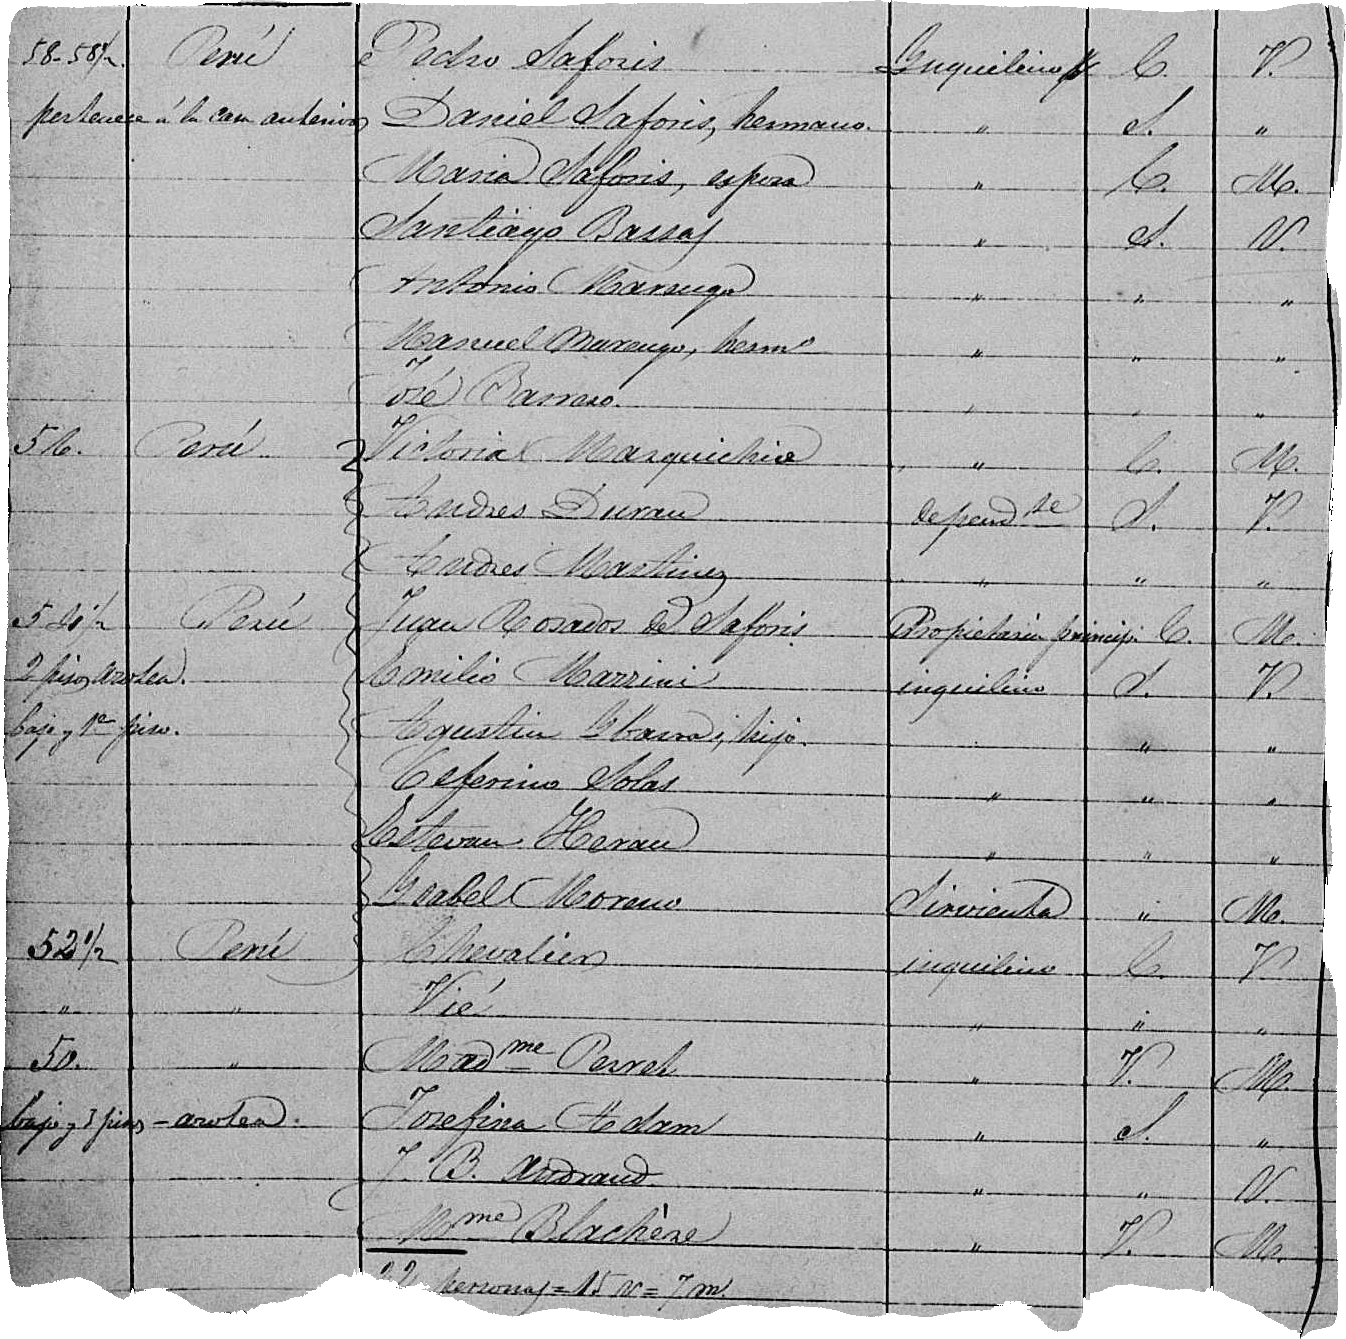 58-58½. Perú Pedro Saforis Inquilino pl C. V.
pertenece á la casa anterior Daniel Saforis, hermano. " S. "
Maria Saforis, esposa " C. M.
Santiago Bassas " S. V.
Antonio Marengo " " "
Manuel Marengo, hermo " " "
José Barrero. " " "
56. Perú Victoria " C. M.
Andres Duran dependte S. V.
Andres Martinez " " "
54½ Perú Juan Rosados de Saforis Propietaria princip. C. M.
2 pisos azotea. Emilio Mazzini inquilino S. V.
bajo y 1er piso. Agustin Ybarra, hijo. " " "
Ceferino Solas " " "
Estevan Heran " " "
Ysabel Moreno Sirvienta " M.
52½ Perú Chevalier inquilino C. V.
" " Vié " " "
50. " Madme Perret " V. M.
bajo y 3 pisos - azotea. Josefina Adam " S. "
J. B. Andraud " " V.
Mme Blachère " V. M.
22 personas = 15 v = 7 m.